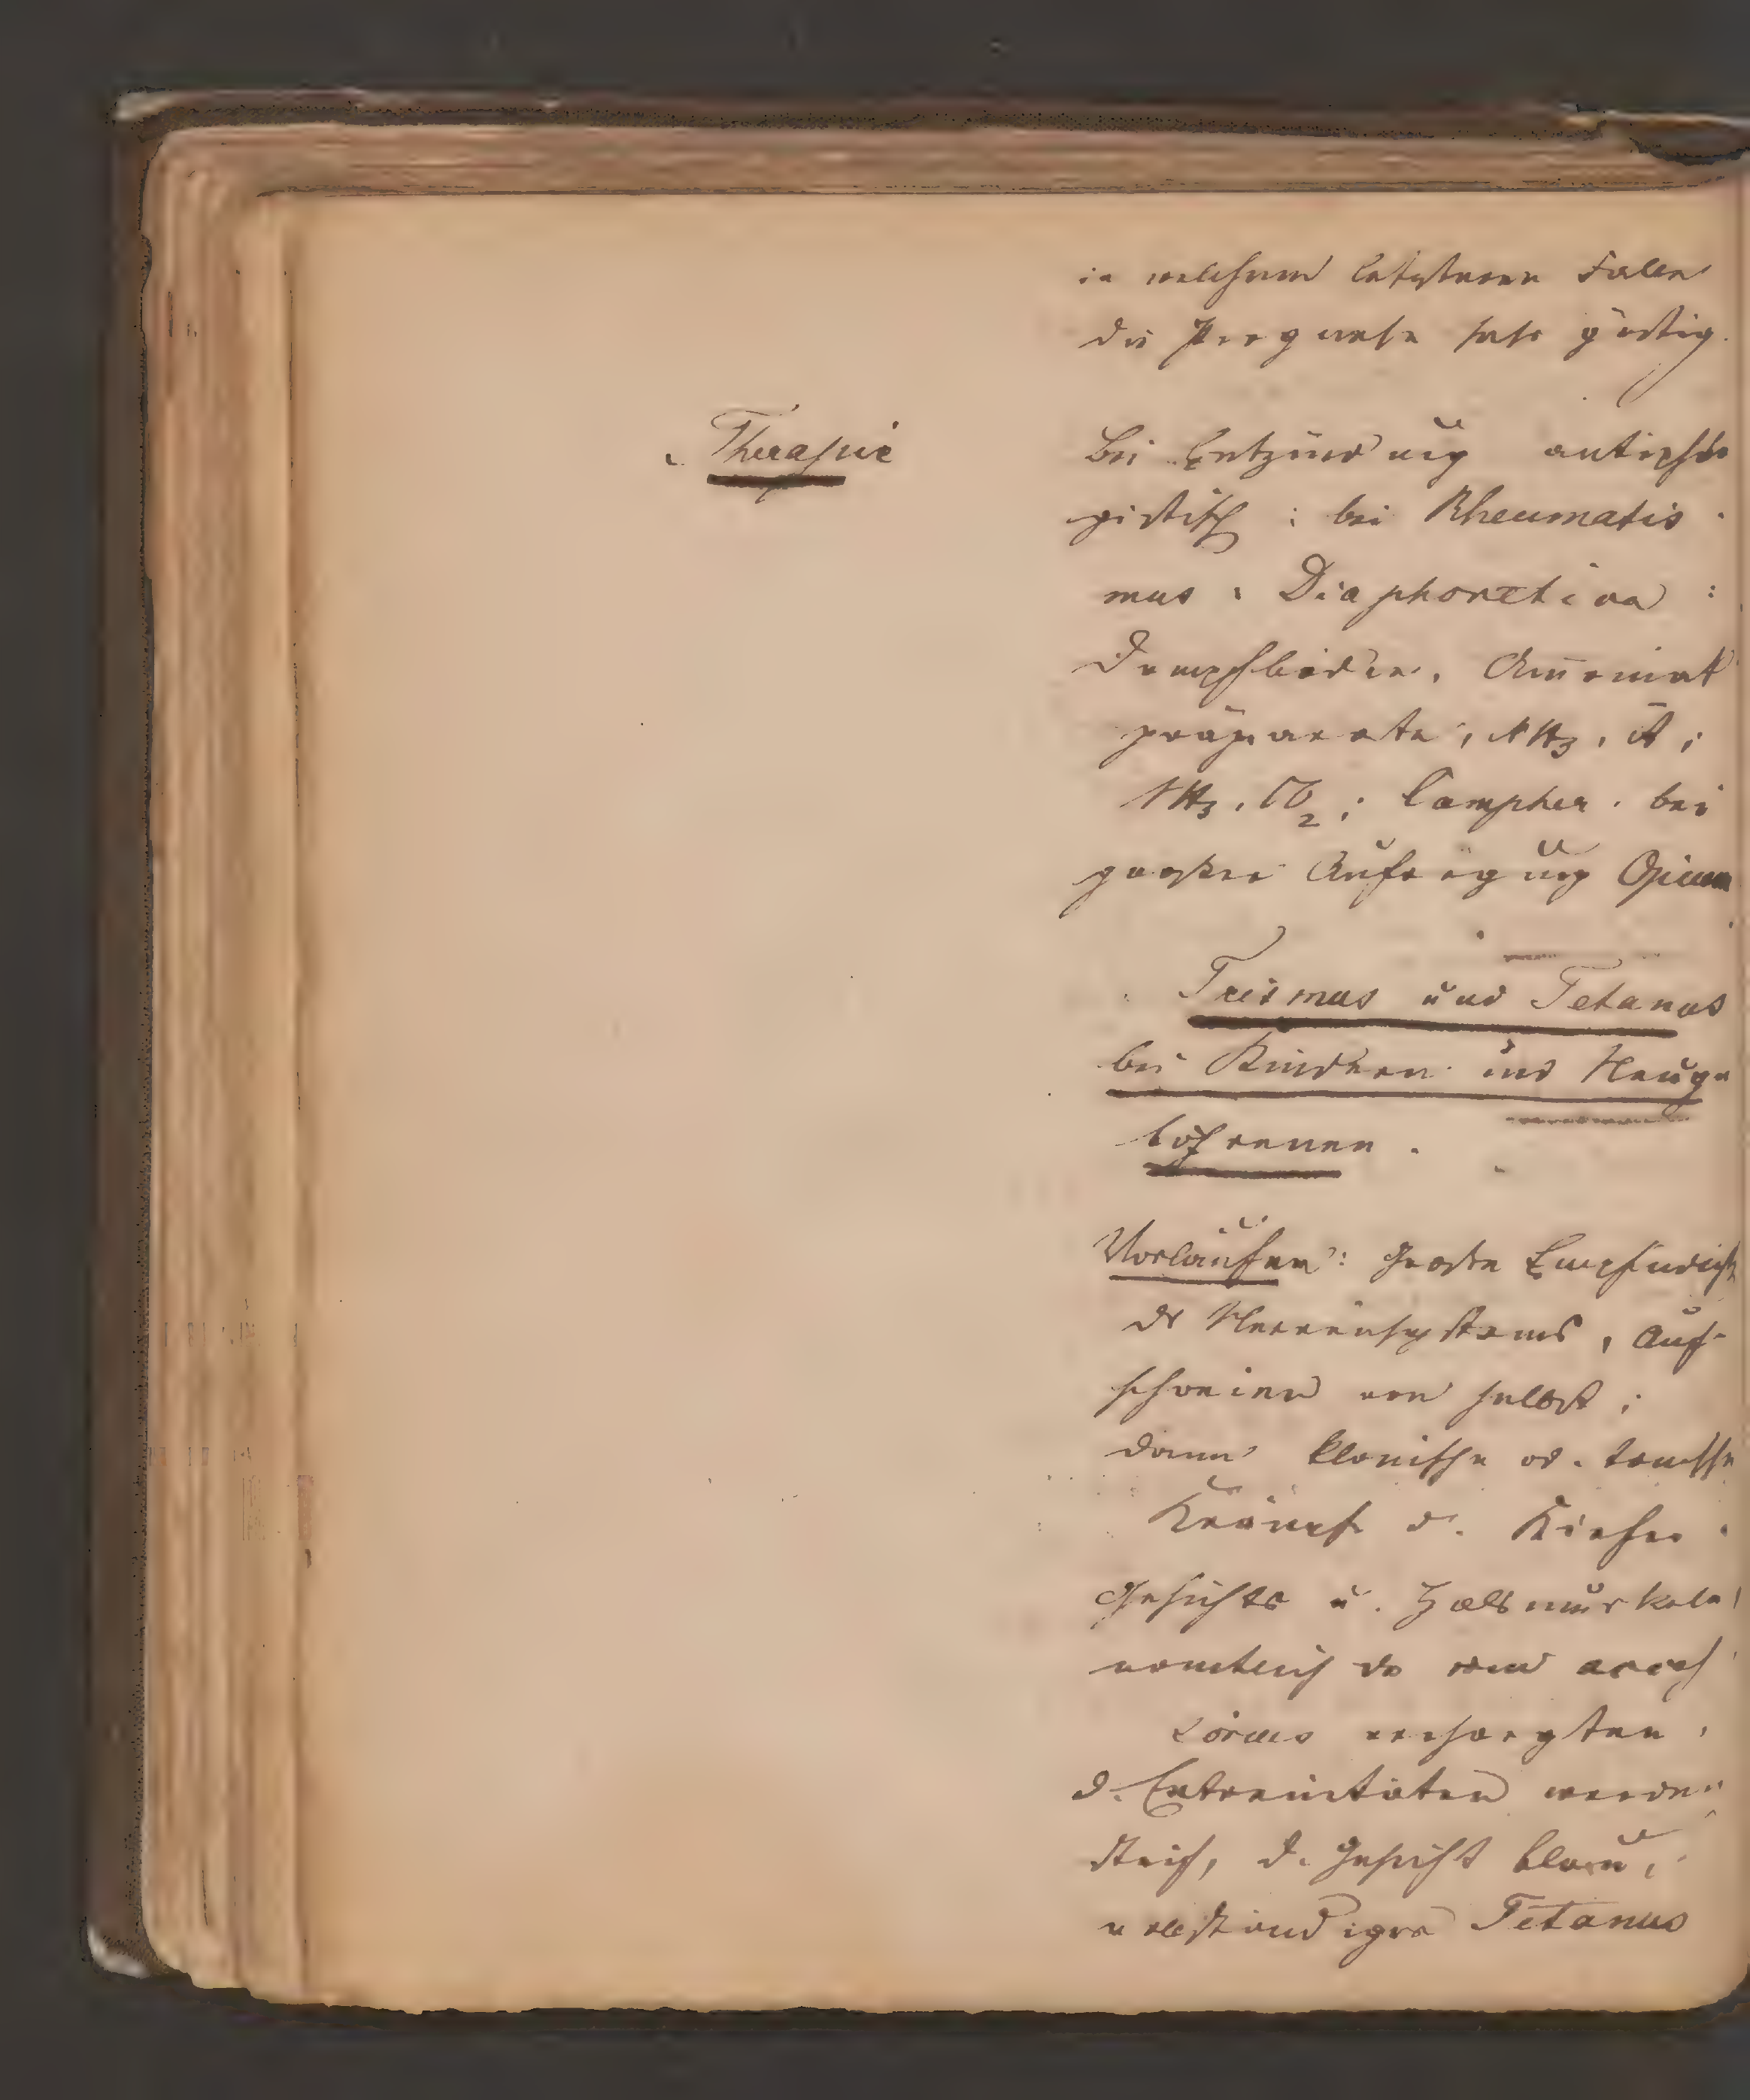 in welchem letzteren Falle
die Prognose sehr günstig.
Therapie
Bei Entzündung antiphlo
gistisch; bei Rheumatis
mus: Diaphoretica:
Dampfbäder, Ammoniak
präparate, NH3, A;
NH3, CO2; Campher. bei
großer Aufregung Opium
Trismus und Tetanus
bei Kindern und Neuge
borenen.
Vorläufer: Große Empfindlichk
des Nervensystems, Auf-
schreien von selbst;
dann klonische od. tonische
Krämpfe d. Kiefer
Gesichts u. Halsmuskeln
namentlich der vom
versorgten,
d. Extremitäten werden
steif, d. Gesicht blau,
vollständiger Tetanus